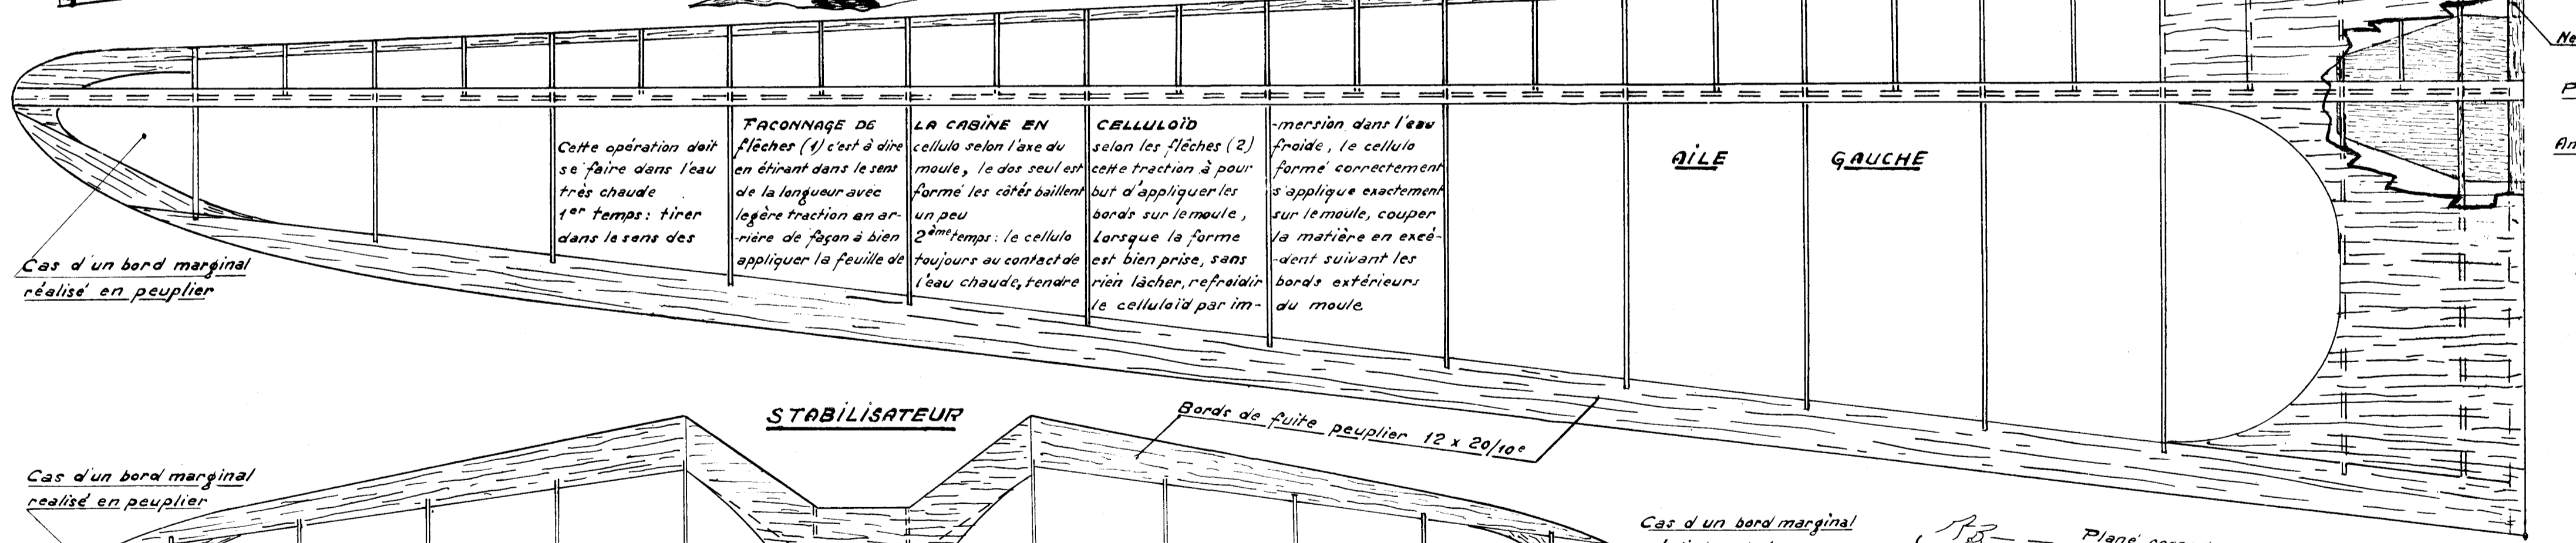 FACONNAGE DE LA CABINE EN CELLULOÏD
Cette opération doit
se faire dans l'eau
très chaude
1er temps: tirer
dans le sens des
flêches (1) c'est à dire
en étirant dans le sens
de la longueur avec
legère traction en ar-
-rière de façon à bien
appliquer la feuille de
cellulo selon l'axe du
moule, le dos seul est
formé les côtés baillent
un peu
2ème temps: le cellulo
toujours au contact de
l'eau chaude, tendre
selon les flêches (2)
cette traction à pour
but d'appliquer les
bords sur le moule,
Lorsque la forme
est bien prise, sans
rien lâcher, refroidir
le celluloïd par im-
-mersion dans l'eau
froide, le cellulo
formé correctement
s'applique exactement
sur le moule, couper
la matière en excé-
-dent suivant les
bords extérieurs
du moule
AILE GAUCHE
Cas d'un bord marginal
réalisé en peuplier
STABILISATEUR
Bords de fuite peuplier 12 x 20/10e
Cas d'un bord marginal
realisé en peuplier
Cas d un bord marginal
Plané